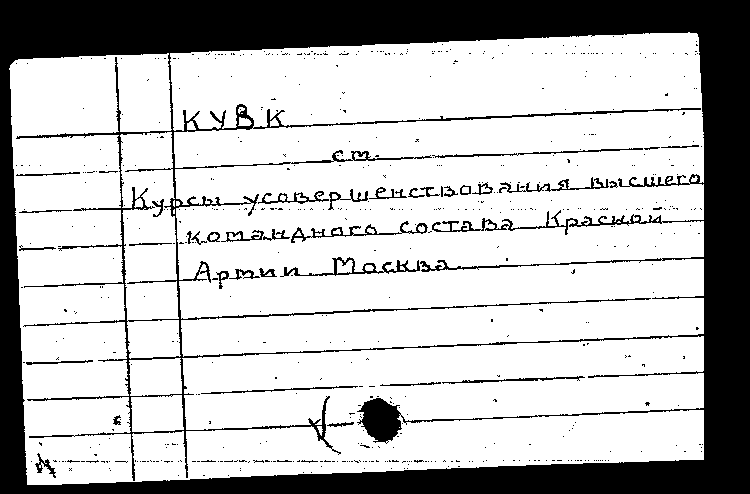 КУВК
ст.
Курсы усовершенствования высшего
командного состава Красной
Армии. Москва.